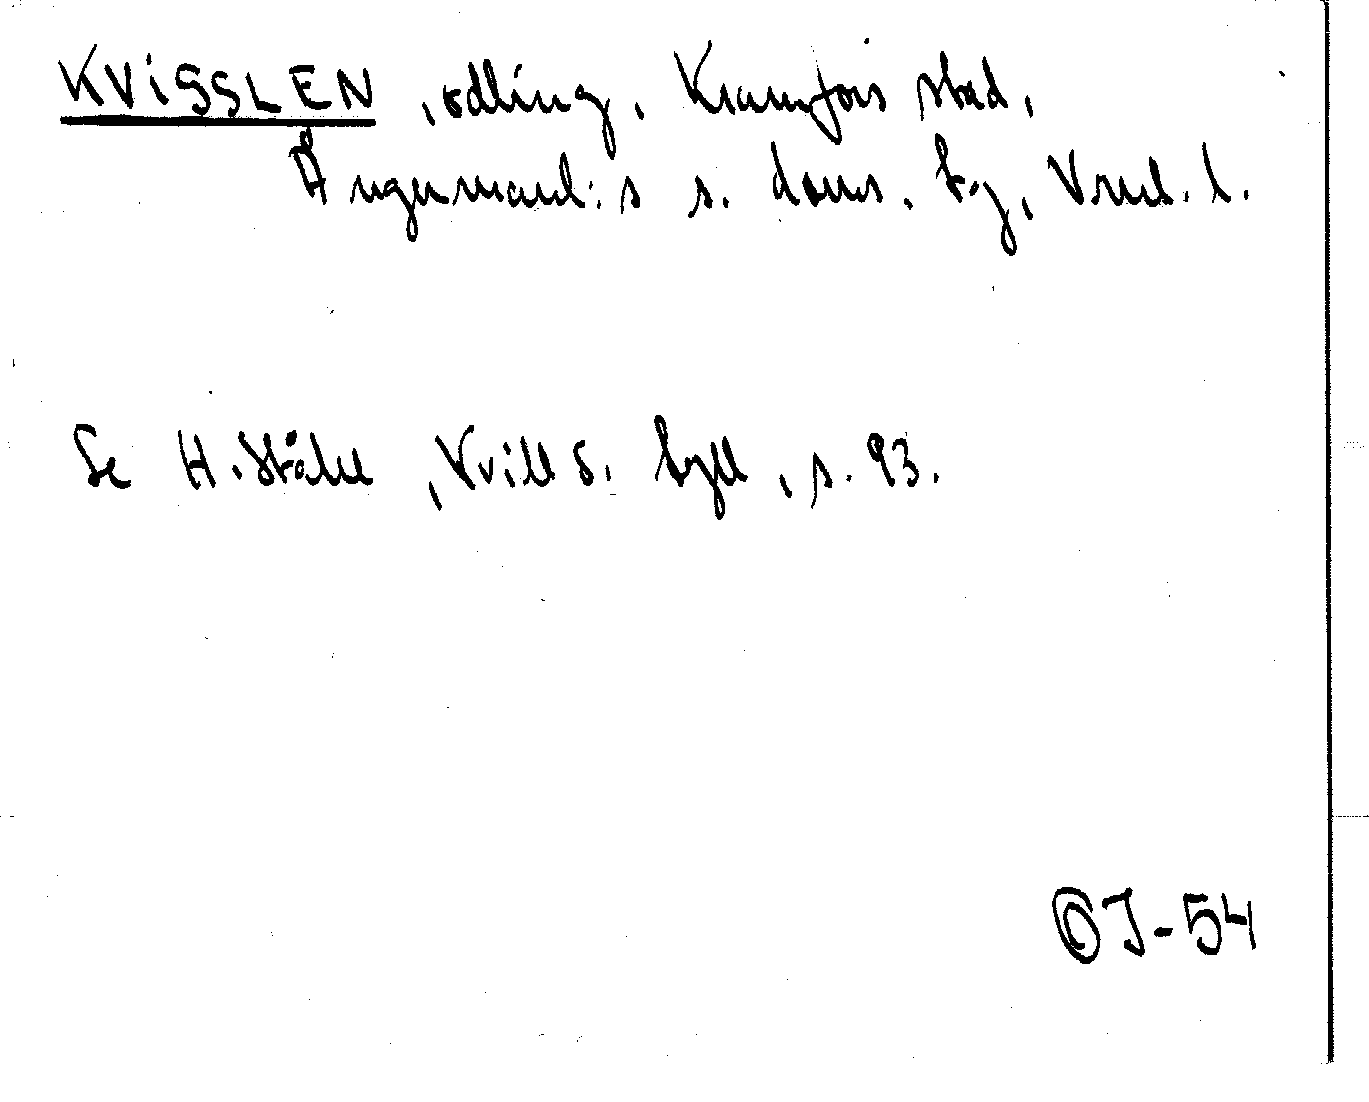 KVISSLEN, odling, Kramfors stad,
Ångermanl:s s. doms. tg, Vrnl. l.
Se H. Ståhl, Kvill o. byll, s. 93.
OJ-54